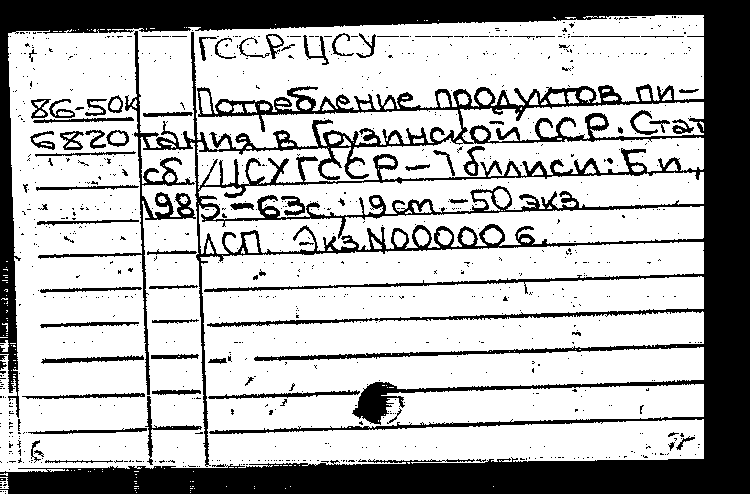 ГССР. ЦСУ.
86-50к Потребление продуктов пи-
6820 тания в Грузинской ССР. Стат
сб. /ЦСУ ГССР. - Тбилиси: Б.и.,
1985. - 63с.; 19 см. - 50 экз.
ДСП. Экз. N000006.
6